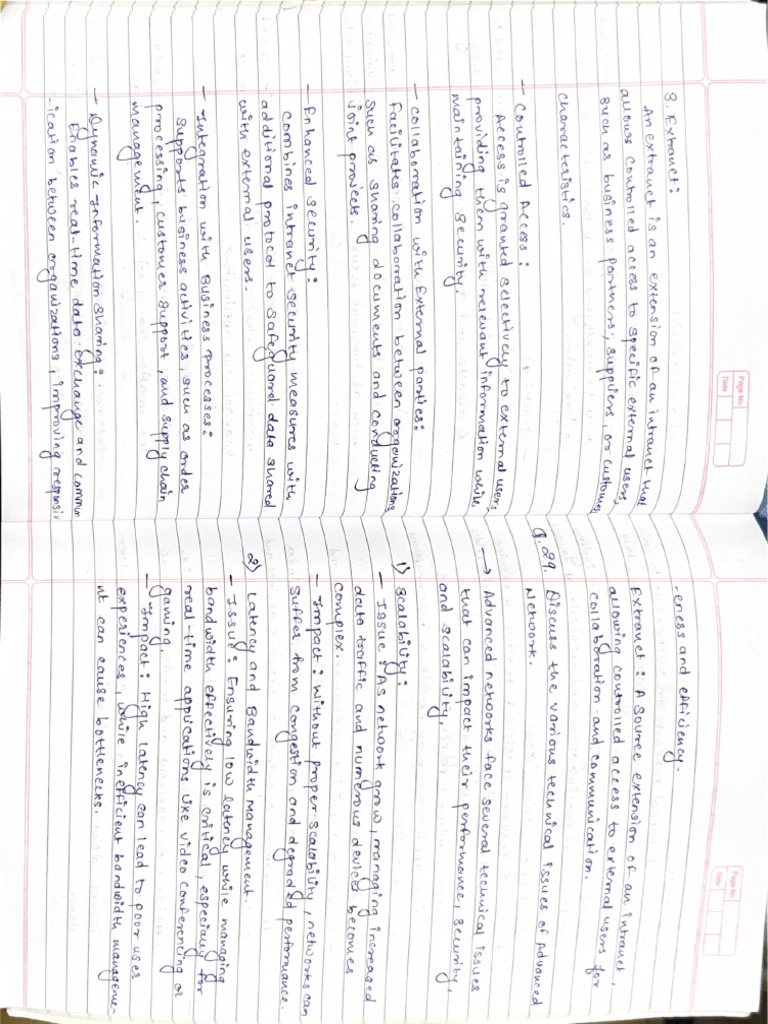 Page No.
Date
3. Extranet:
An extranet is an extension of an intranet that
allows controlled access to specific external users,
such as business partners, suppliers, or customer
characteristics.
- Controlled Access:
Access is granted selectively to external users
providing them with relevant information while
maintaining security.
- collaboration with External parties:
facilitates collaboration between organizations
such as sharing documents and conducting
joint projects.
- Enhanced Security:
combines intranet security measures with
additional protocol to safeguard data shared
with external users.
- Integration with Business processes:
Supports business activities, such as order
processing, customer support, and supply chain
management.
- Dynamic Information sharing:
Enables real-time data exchange and commun
-ication between organizations, improving responsiv
Page No.
Date
-eness and efficiency.
Extranet: A Source extension of an intranet,
allowing controlled access to external users for
collaboration and communication.
Q.29. Discuss the various technical issues of Advanced
Network.
→ Advanced networks face several technical issues
that can impact their performance, security,
and scalability,
1) Scalability:
- Issue: As network grow, managing increased
data traffic and numerous devices becomes
complex.
- Impact: Without proper scalability, networks can
suffer from congestion and degraded performance.
2) Latency and Bandwidth management.
- Issue: Ensuring low latency while managing
bandwidth effectively is critical, especially for
real-time applications like video conferencing or
gaming.
- Impact: High latency can lead to poor uses
experiences, while inefficient bandwidth manageme-
nt can cause bottlenecks.